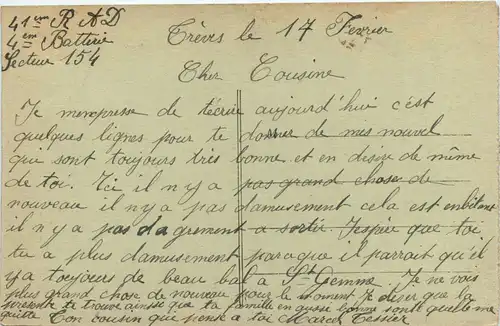 41em R A D
4em Batterie
Secteur 154
Trèves le 17 Fevrier
Cher Cousine
Je menpresse de técrire aujourd'hui c'est
quelques lignes pour te donner de mes nouvel
qui sont toujours très bonne et en disire de même
de toi. Ici il n y a pas grand chose de
nouveau il n y a pas damusement cela est enbêtant
il n y a pas dagrement a sortir J'espère que toi
tu a plus damusement paraque il parrait qu'il
y a toujours de beau bal a St Gemme. Je ne vois
plus grand chose de nouveau pour le moment Je diser que la
presente te trouve ainsi que ta famille en aussi bonne santé quelle me
quitte Ton cousin qui pense a toi Marcel Tessier